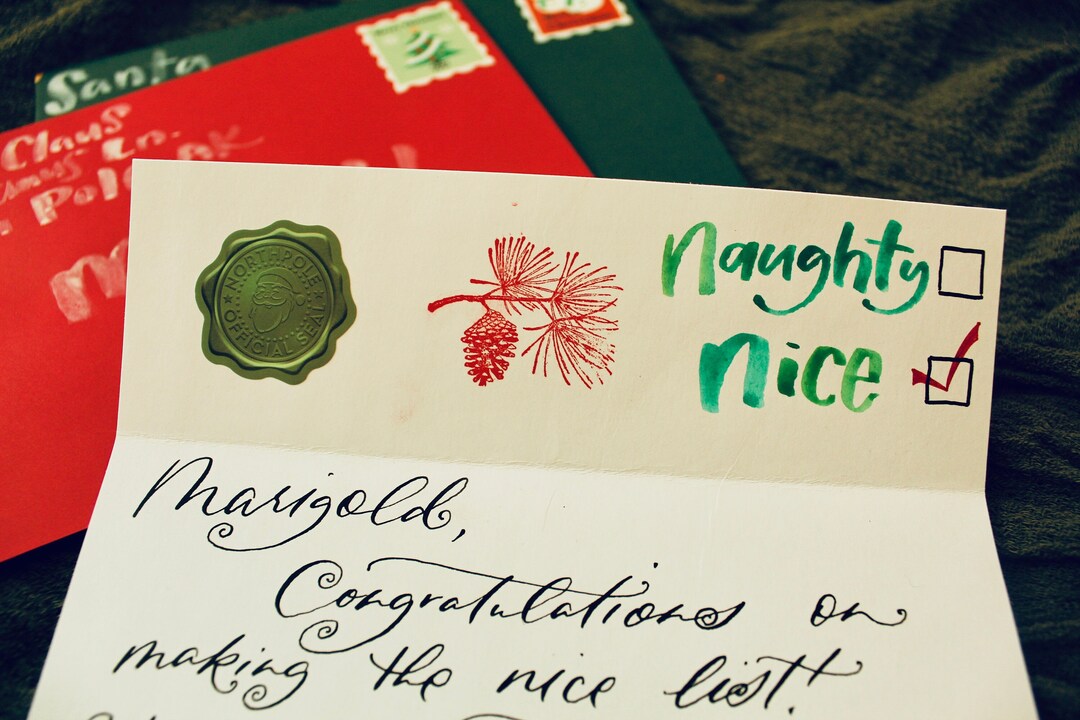 Santa
Claus
Ln.
Pole
NORTHPOLE
OFFICIAL SEAL
naughty
nice
Marigold,
Congratulations on
making the nice list!